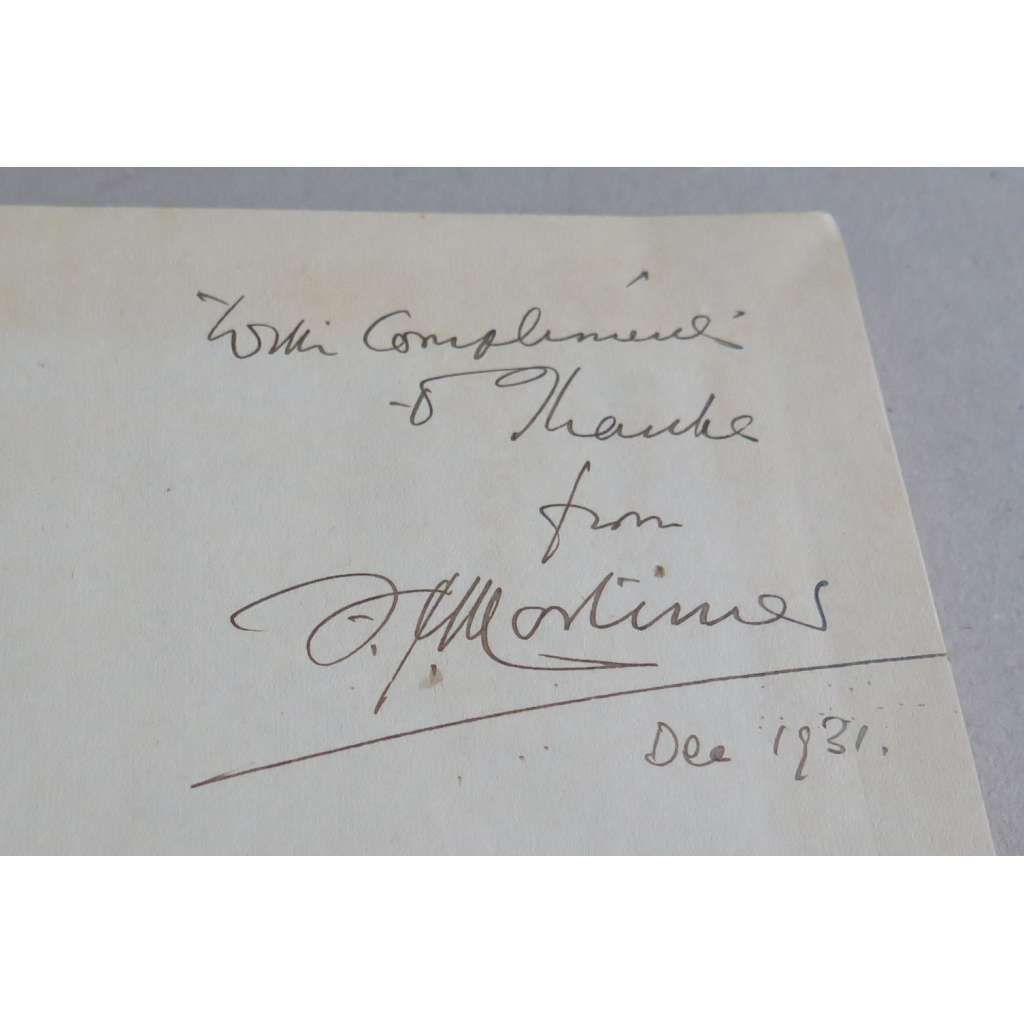 With Compliments
& Thanks
from
F. J. Mortimer
Dec 1931.